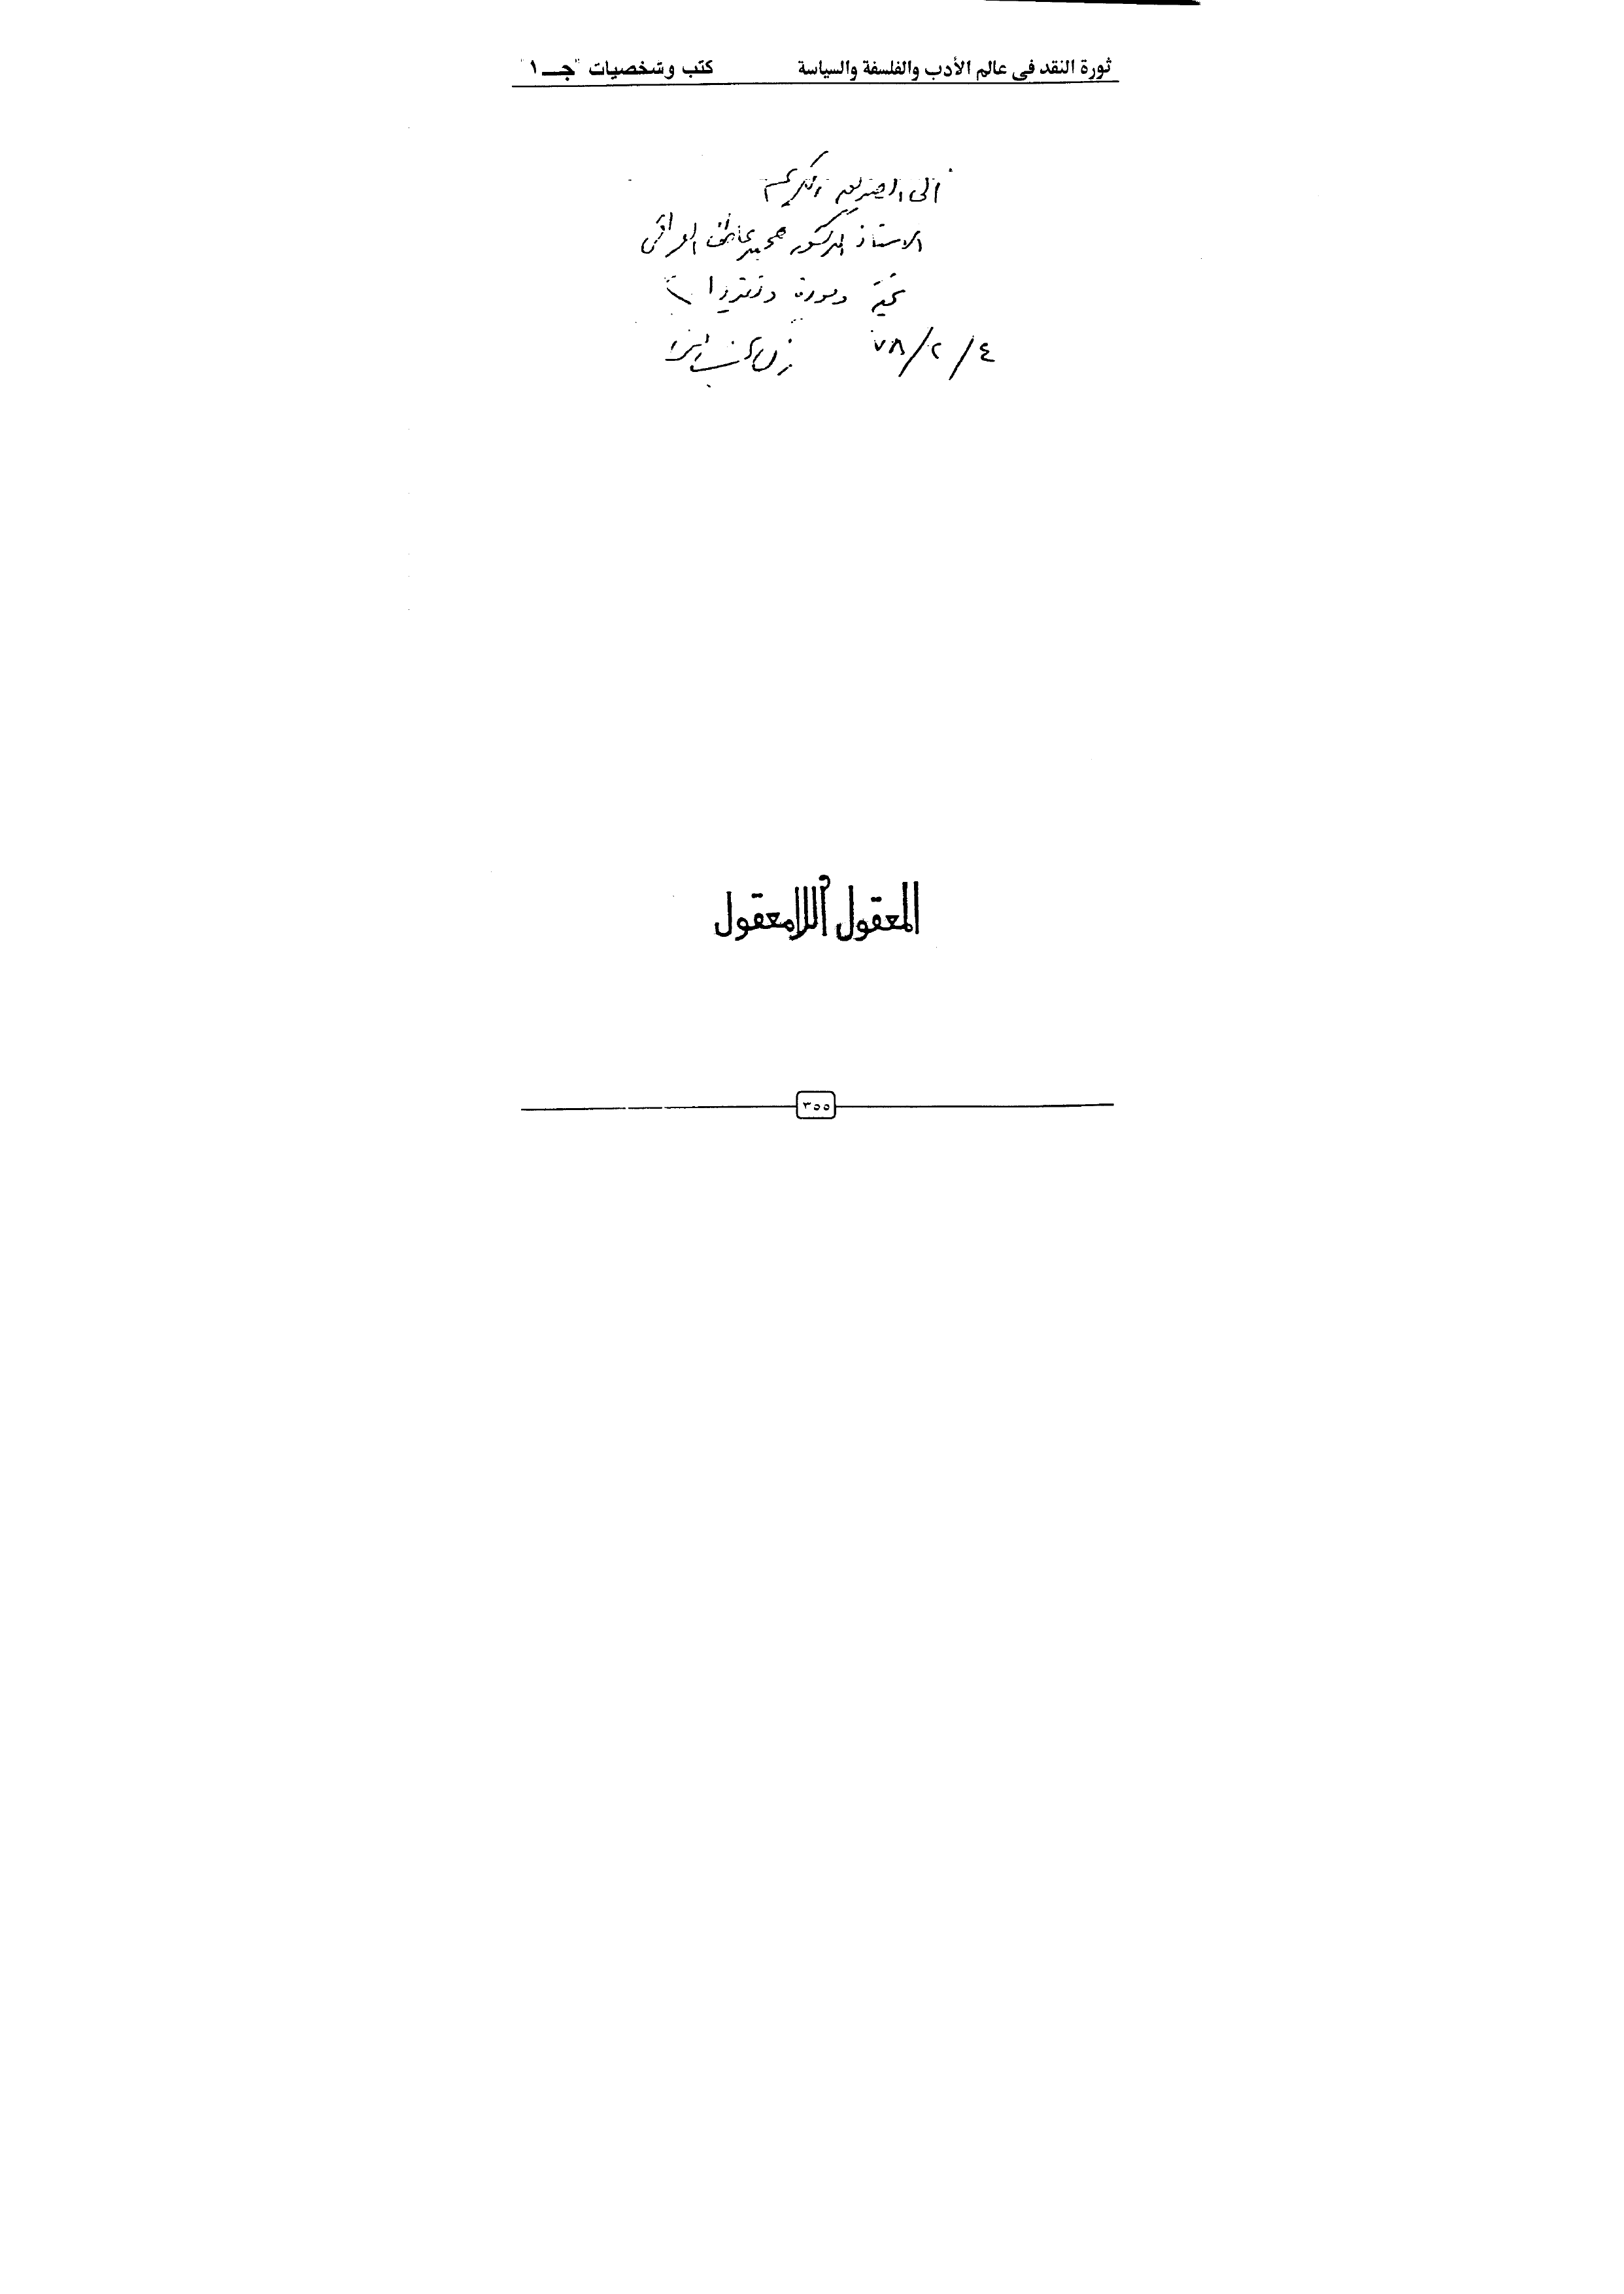 ثورة النقد فى عالم الأدب والفلسفة والسياسة كتب وشخصيات "جـ ١"
الى الصديق الكريم
الاستاذ الدكتور محمد عاطف العراقى
تحية ومودة وتقديرا
٤/٢/٧٨ زكى نجيب
المعقول واللامعقول
٣٥٥